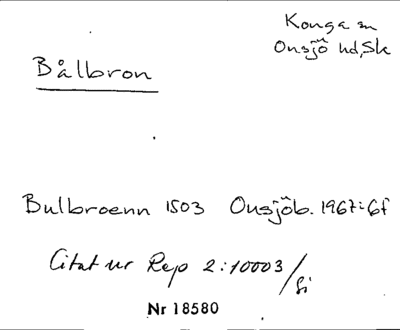 Konga sn
Onsjö hd, Sk
Bålbron
Bulbroenn 1503 Onsjöb. 1967:6f
Citat ur Rep 2:10003/Gi
Nr 18580